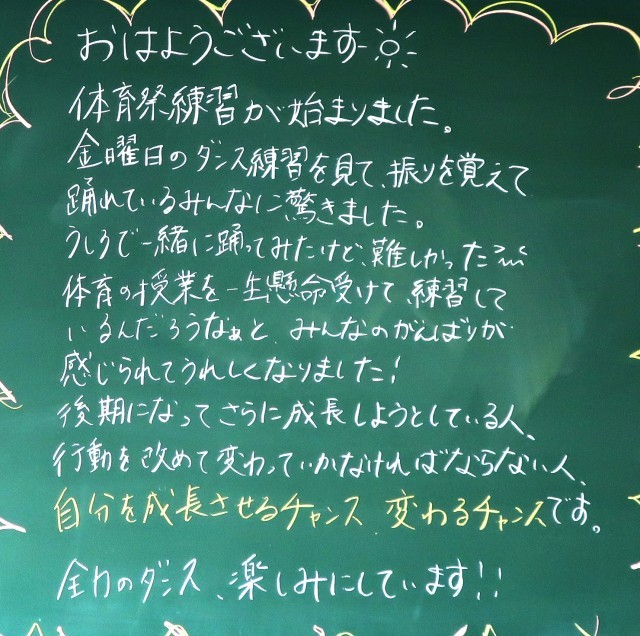 おはようございます
体育祭練習が始まりました。
金曜日のダンス練習を見て、振りを覚えて
踊れているみんなに驚きました。
うしろで一緒に踊ってみたけど、難しかった
体育の授業を一生懸命受けて、練習して
いるんだろうなぁと、みんなのがんばりが
感じられてうれしくなりました!
後期になってさらに成長しようとしている人、
行動を改めて変わっていかなければならない人、
自分を成長させるチャンス、変わるチャンスです。
全力のダンス、楽しみにしています!!